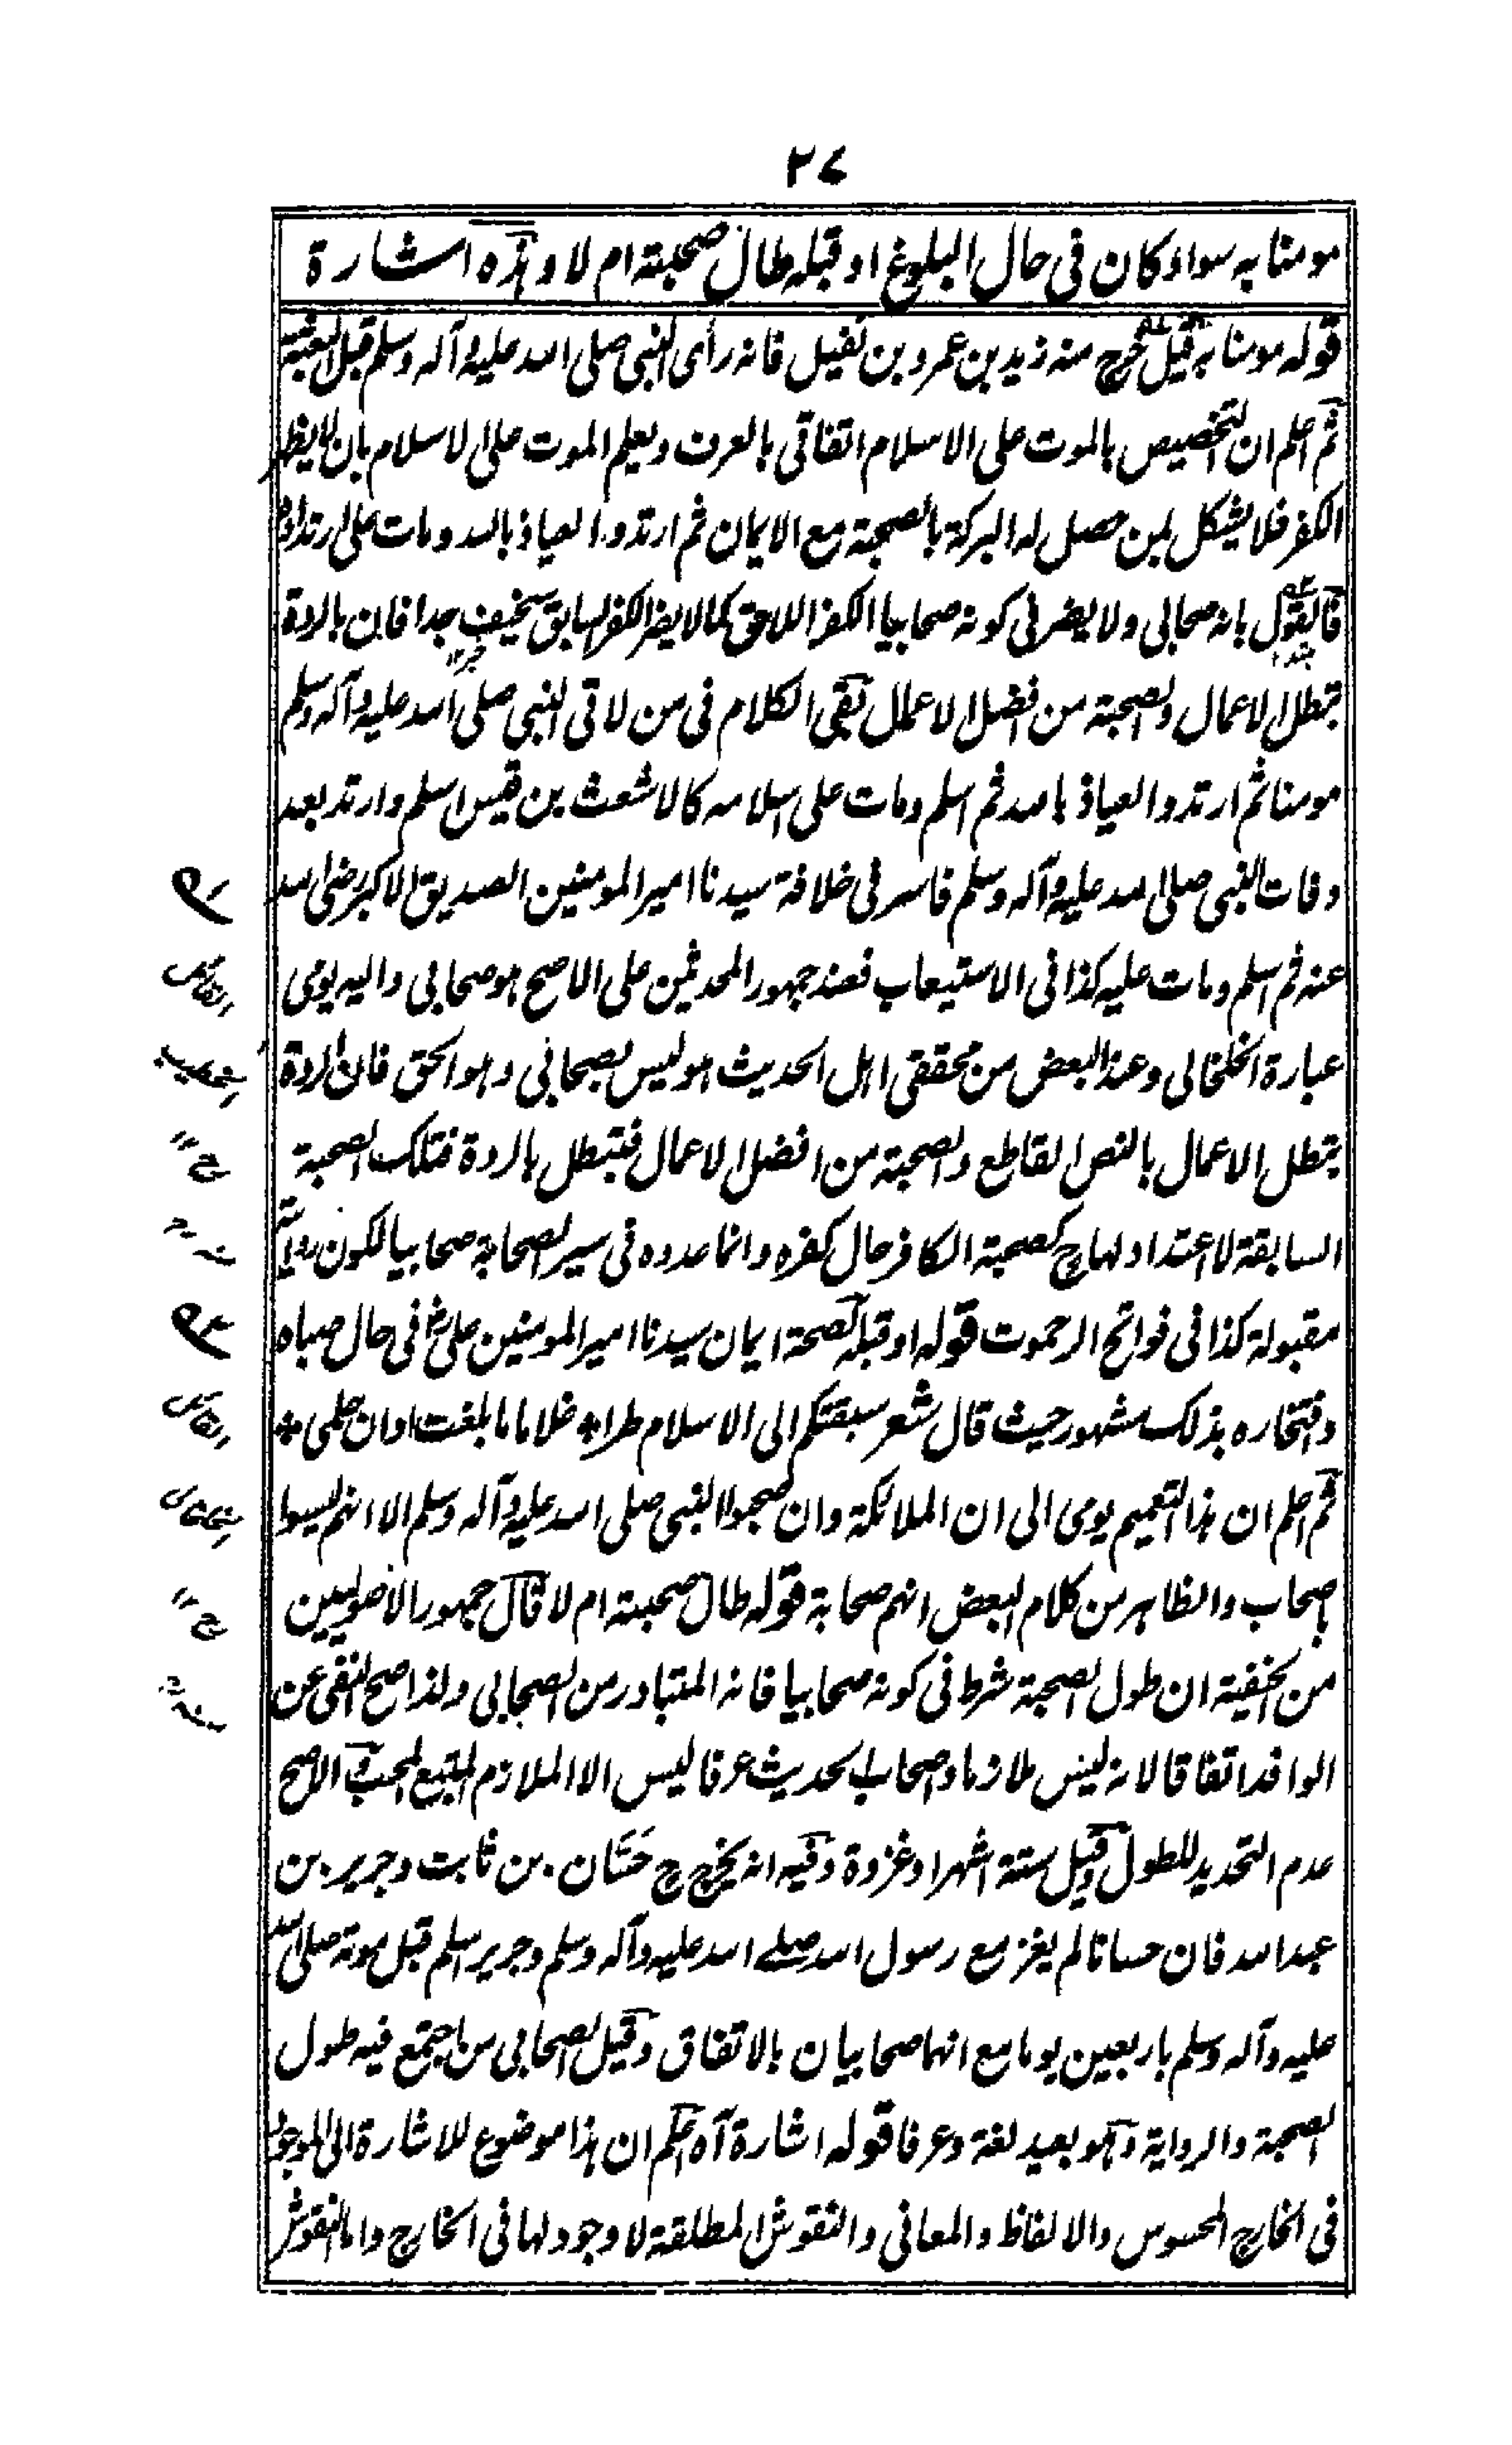 ٢٧
مومنا به سواء كان فى حال البلوغ او قبله طال صحبته ام لا وهذه اشارة
قوله مومنا به قيل خرج منه زيد بن عمرو بن نفيل فانه رأى النبى صلى الله عليه وآله وسلم قبل البعثة
ثم اعلم ان التخصيص بالموت على الاسلام اتفاقى بالعرف ويعلم الموت على الاسلام بان لا يظهر
الكفر فلا يشكل بمن حصل له البركة بالصحبة مع الايمان ثم ارتد والعياذ بالله ومات على ارتداده
فالقول بانه صحابى ولا يضر فى كونه صحابيا الكفر اللاحق كما لا يضر الكفر السابق سخيف جدا فان بالردة
تبطل الاعمال والصحبة من افضل الاعمال بقى الكلام فى من لاقى النبى صلى الله عليه وآله وسلم
مومنا ثم ارتد والعياذ بالله ثم اسلم ومات على اسلامه كالاشعث بن قيس اسلم وارتد بعد
وفات النبى صلى الله عليه وآله وسلم فاسر فى خلافة سيدنا امير المومنين الصديق الاكبر رضى الله
عنه ثم اسلم ومات عليه كذا فى الاستيعاب فعند جمهور المحدثين على الاصح هو صحابى واليه يومى
عبارة الخلخالى وعند البعض من محققى اهل الحديث هو ليس بصحابى وهو الحق فان الردة
تبطل الاعمال بالنص القاطع والصحبة من افضل الاعمال فتبطل بالردة فتلك الصحبة
السابقة لا اعتداد لها ح كصحبة الكافر حال كفره وانما عدوه فى سير الصحابة صحابيا لكون روايته
مقبولة كذا فى فواتح الرحموت قوله او قبله لصحة ايمان سيدنا امير المومنين على رض فى حال صباه
وافتخاره بذلك مشهور حيث قال شعر سبقتكم الى الاسلام طرا * غلاما ما بلغت اوان حلمى *
ثم اعلم ان هذا التعميم يومى الى ان الملائكة وان صحبوا النبى صلى الله عليه وآله وسلم الا انهم ليسوا
باصحاب والظاهر من كلام البعض انهم صحابة قوله طال صحبته ام لا قال جمهور الاصوليين
من الحنفية ان طول الصحبة شرط فى كونه صحابيا فانه المتبادر من الصحابى ولذا صح النفى عن
الوافد اتفاقا لانه ليس ملازما واصحاب الحديث عرفا ليس الا الملازم المتبع الاصح
عدم التحديد للطول وقيل ستة اشهر او غزوة وفيه انه يخرج ح حَسَّان بن ثابت وجرير بن
عبد الله فان حسانا لم يغز مع رسول الله صلے الله عليه وآله وسلم وجرير اسلم قبل موته صلى الله
عليه وآله وسلم باربعين يوما مع انهما صحابيان بالاتفاق وقيل الصحابى من اجتمع فيه طول
الصحبة والرواية وهو بعيد لغة وعرفا قوله اشارة آه اعلم ان هذا موضوع للاشارة الى الموجود
فى الخارج المحسوس والالفاظ والمعانى والنقوش المطلقة لا وجود لها فى الخارج واما النقوش